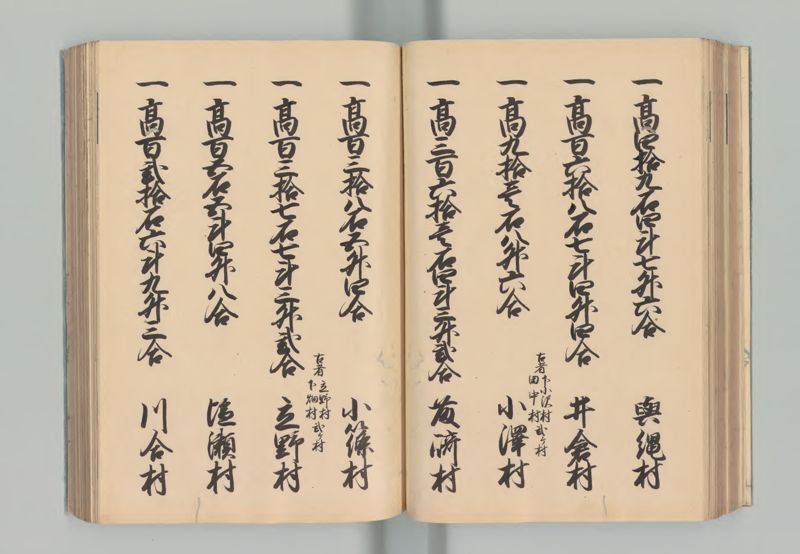 一高四拾九石四斗七升六合 與縄村
一高百六拾八石七斗四升四合 井倉村
古者下小沢村
田中村 弐ケ村
一高九拾壱石八升六合 小澤村
一高三百六拾壱石四斗三升弐合
一高百三拾八石五升四合 小篠村
古者立野村
下畑村 弐ケ村
一高百三拾七石七斗三升弐合 立野村
一高百五石五斗四升八合 塩瀬村
一高百弐拾石六斗九升二合 川合村